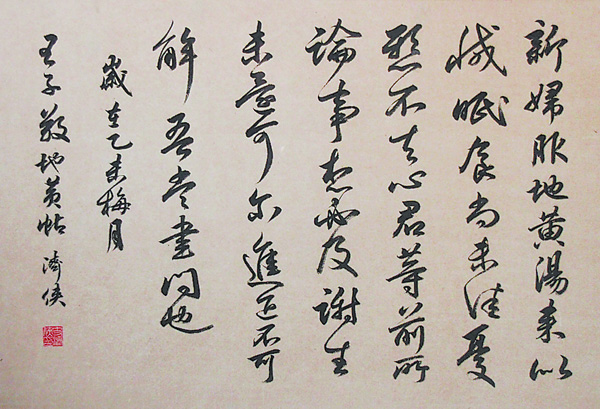 新婦服地黃湯來似
減眠食尚未佳憂
懸不去心君等前所
論事想必及謝生
未還可尔進退不可
解吾當書問也
歲在乙未梅月
王子敬地黃帖 濟侯